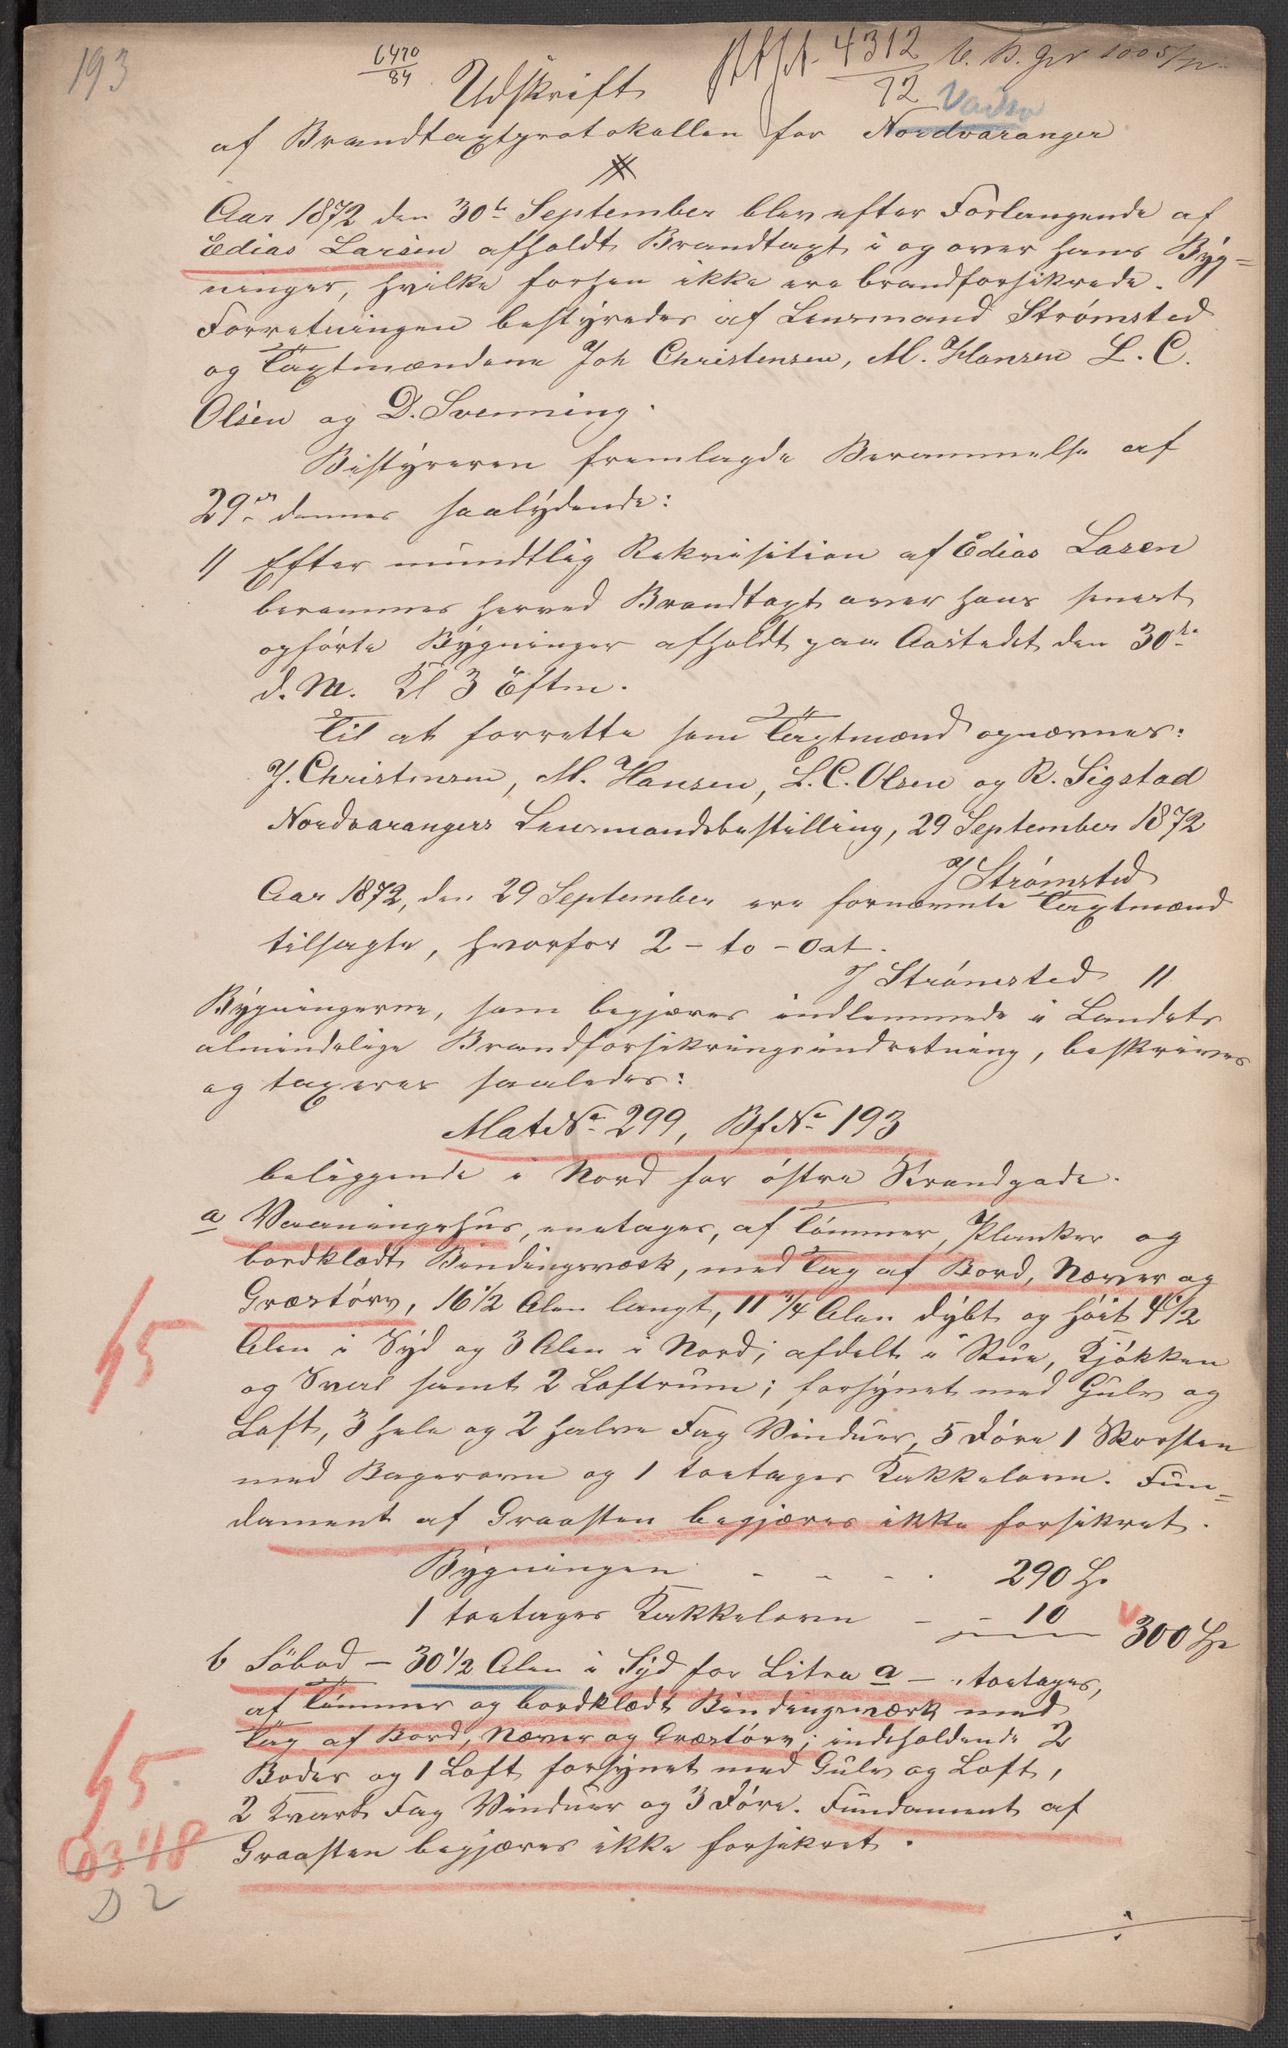 193
6470
84
4312
72
Udskrift
Vadsø
af Brandtaxtprotokollen for Nordvaranger
Aar 1872 den 30te September blev efter Forlangende af
Edias Larsen afholdt Brandtaxt i og over hans Byg=
ninger, hvilke forhen ikke ere brandforsikrede.
Forretningen bestyredes af Lensmand Strømsted
og Taxtmændene Joh Christensen, M. Hansen L. C.
Olsen og D. Svenning.
Bestyreren fremlagde Berammelse af
29de dennes saalydende:
1/ Efter mundtlig Rekvisition af Edias Lasen
berammes herved Brandtaxt over hans senest
opførte Bygninger afholdt paa Aastedet den 30te
d. M. Kl 3 Eftm.
Til at forrette som Taxtmænd opnævnes:
J. Christensen, M. Hansen, L. C. Olsen og R. Sigstad
Nordvarangers Lensmandsbestilling, 29 September 1872
J Strømsted
Aar 1872, den 29 September ere fornævnte Taxtmænd
tilsagte, hvorfor 2 - to - Ort.
J Strømsted //
Bygningerne, som begjæres indlemmede i Landets
almindelige Brandforsikringsindretning, beskrives
og taxeres saaledes:
Mat No 299, Bf No 193
beliggende i Nord for østre Strandgade.
a Vaaningshus, enetages, af Tømmer, Planker og
bordklædt Bindingsværk, med Tag af Bord, Næver og
Græstørv, 16 1/2 Alen langt, 11 3/4 Alen dybt og høit 4 1/2
Alen i Syd og 3 Alen i Nord; afdelt i Stue, Kjøkken
og Sval samt 2 Loftrum; forsynet med Gulv og
Loft, 3 hele og 2 halve Fag Vinduer, 5 Døre 1 Skorsten
med Bagerovn og 1 toetages Kakkelovn. Fun=
dament af Graasten begjæres ikke forsikret.
Bygningen - - - . 290 Sp
1 toetages Kakkelovn - - 10 300 Sp
b Søbod - 30 1/2 Alen i Syd for Litra a - , toetages,
af Tømmer og bordklædt Bindingsværk med
Tag af Bord, Næver og Græstørv; indeholdende 2
Boder og 1 Loft forsynet med Gulv og Loft,
2 Kvart Fag Vinduer og 3 Døre. Fundament af
Graasten begjæres ikke forsikret.
D 2